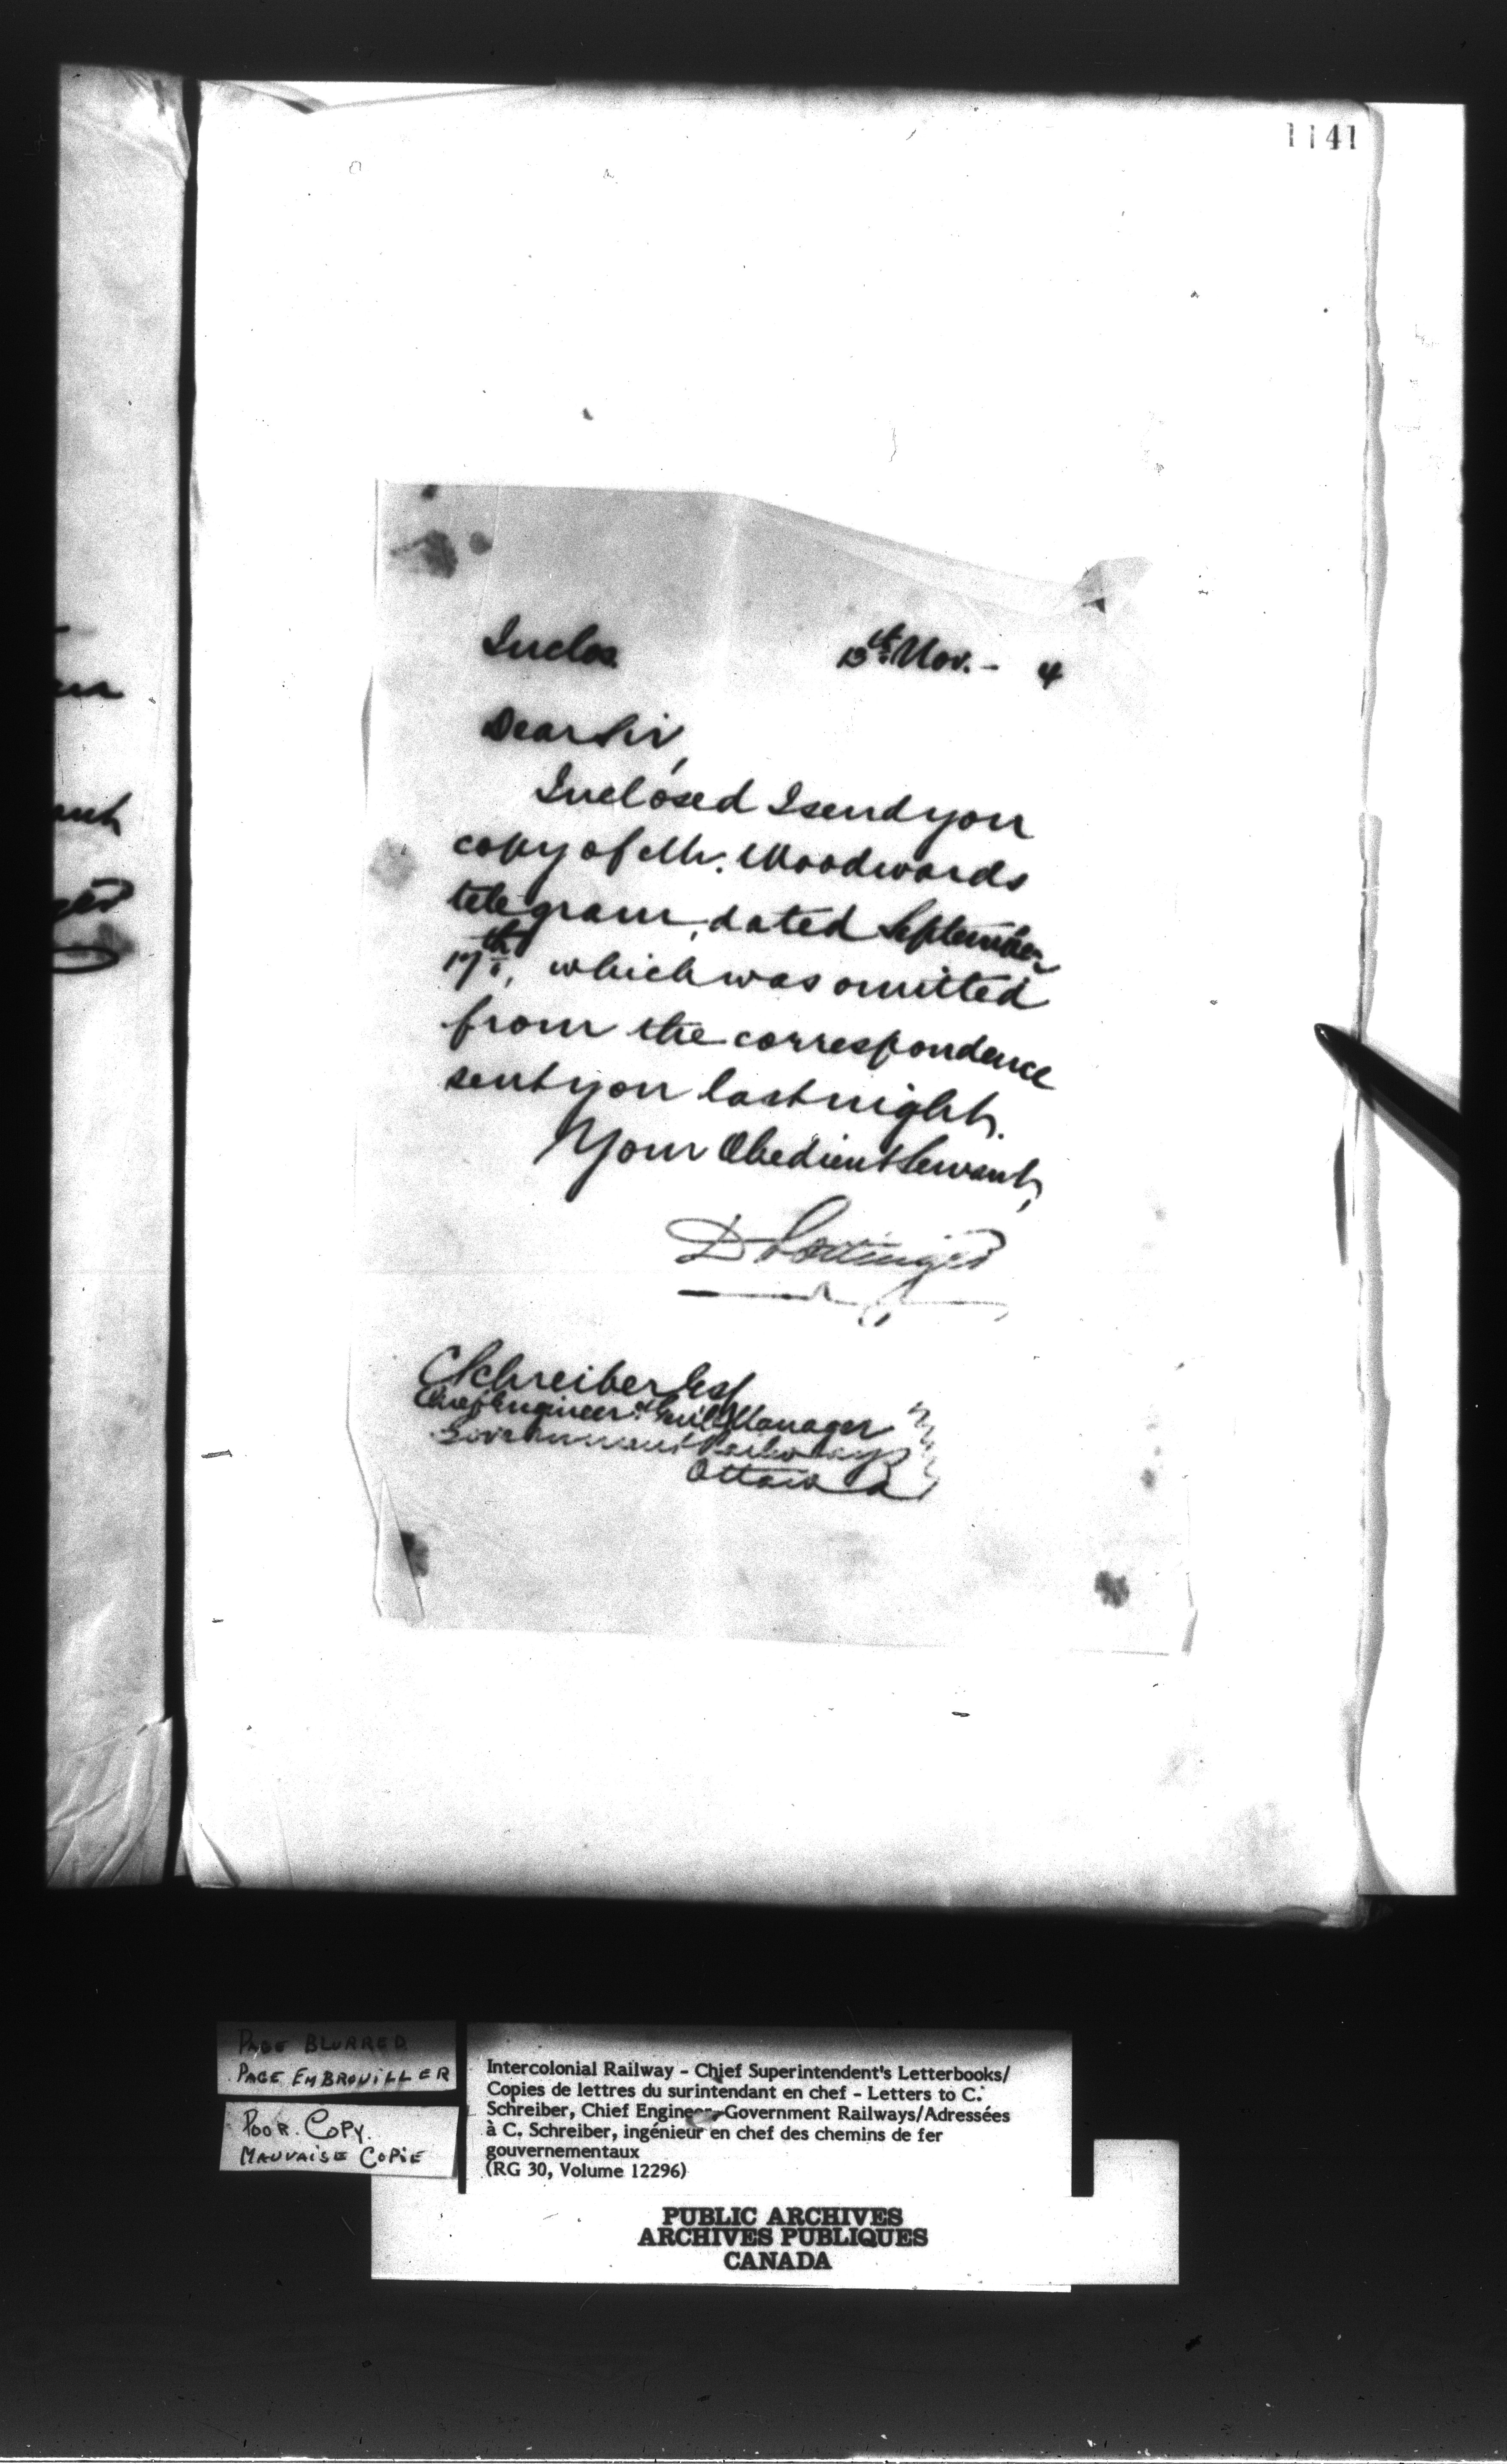 1141
Inclos. 13th Nov. - 4
Dear Sir,
Inclosed I send you
copy of Mr. Woodwards
telegram, dated September
17th, which was omitted
from the correspondence
sent you last night.
Your Obedient Servant,
D Pottinger
C Schreiber Esq
Chief Engineer & Genl Manager
Government Railways
Ottawa
PAGE BLURRED
PAGE EMBROUILLER
POOR. COPY.
MAUVAISE COPIE
Intercolonial Railway - Chief Superintendent's Letterbooks/
Copies de lettres du surintendant en chef - Letters to C.
Schreiber, Chief Engineer, Government Railways/Adressées
à C. Schreiber, ingénieur en chef des chemins de fer
gouvernementaux
(RG 30, Volume 12296)
PUBLIC ARCHIVES
ARCHIVES PUBLIQUES
CANADA